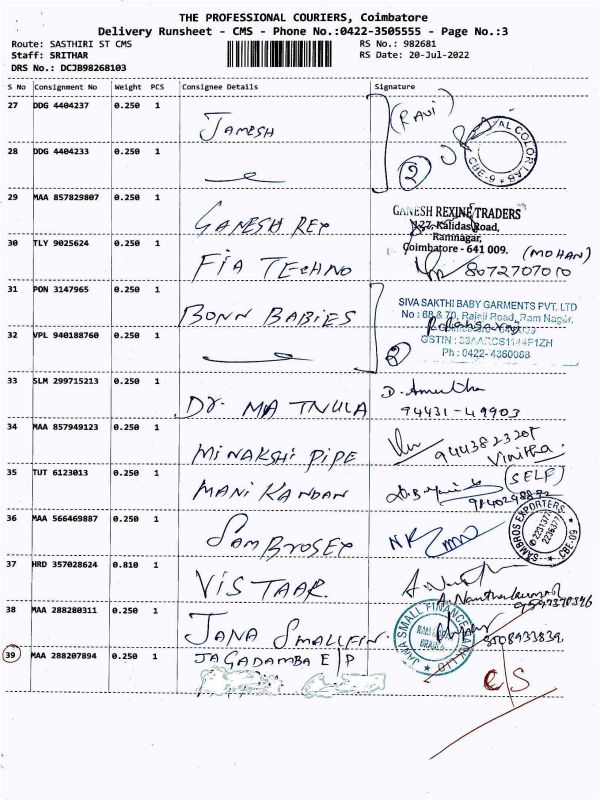 THE PROFESSIONAL COURIERS, Coimbatore
Delivery Runsheet - CMS - Phone No.:0422-3505555 - Page No.:3
Route: SASTHIRI ST CMS
RS No.: 982681
Staff: SRITHAR
RS Date: 20-Jul-2022
DRS No.: DCJB98268103
S No Consignment No Weight PCS Consignee Details Signature
27 DDG 4404237 0.250 1 JAMESH (RAVI)
28 DDG 4404233 0.250 1 2
COLOR LAB
CBE-9
29 MAA 857829807 0.250 1 GANESH REX
GANESH REXINE TRADERS
127, Kalidas Road,
Ramnagar,
Coimbatore - 641 009.
30 TLY 9025624 0.250 1 FIA TECHNO (MOHAN)
8072707010
31 PON 3147965 0.250 1 BONN BABIES
SIVA SAKTHI BABY GARMENTS PVT. LTD
No : 68 & 70, Rajaji Road, Ram Nagar,
32 VPL 940188760 0.250 1 2
Ph : 0422- 4360088
33 SLM 299715213 0.250 1 Dr. MATNULA D. Amutha
94431-49903
34 MAA 857949123 0.250 1 MINAKSHI PIPE 9443823205
Vinitha.
35 TUT 6123013 0.250 1 MANI KANDAN (SELF)
36 MAA 566469887 0.250 1 SAMBROSEX
SAMBROS EXPORTERS
CBE-09
37 HRD 357028624 0.810 1 VISTAAR
38 MAA 288280311 0.250 1 JANA SMALLFIN
JANA SMALL FINANCE BANK LTD
39 MAA 288207894 0.250 1 JAGADAMBA E P C/S